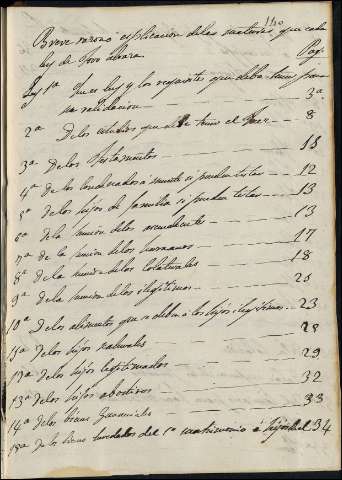 110
Breve razon ó esplicacion de las materias, que cada
ley de Toro abraza.
Pag.
Ley 1ª Que es ley y los requisitos que deba tener para
su validacion 3ª
2ª De los estudios que debe tener el Juez 8
3ª De los Testamentos 11
4ª de los condenados á muerte si pueden testar 12
5ª de los hijos de familia si pueden testar 13
6ª de la sucesion de los ascendientes 13
7ª de la sucesion de los hermanos 17
8ª de la sucesion de los colaterales 18
9ª de la sucesion de los ilegitimos 20
10ª De los alimentos que se deben á los hijos ilegitimos 23
11ª de los hijos naturales 28
12ª de los hijos legitimados 29
13ª de los hijos abortivos 32
14ª de los bienes Gananciales 33
15ª de los bienes heredados del 1º matrimonio á hijos del 34